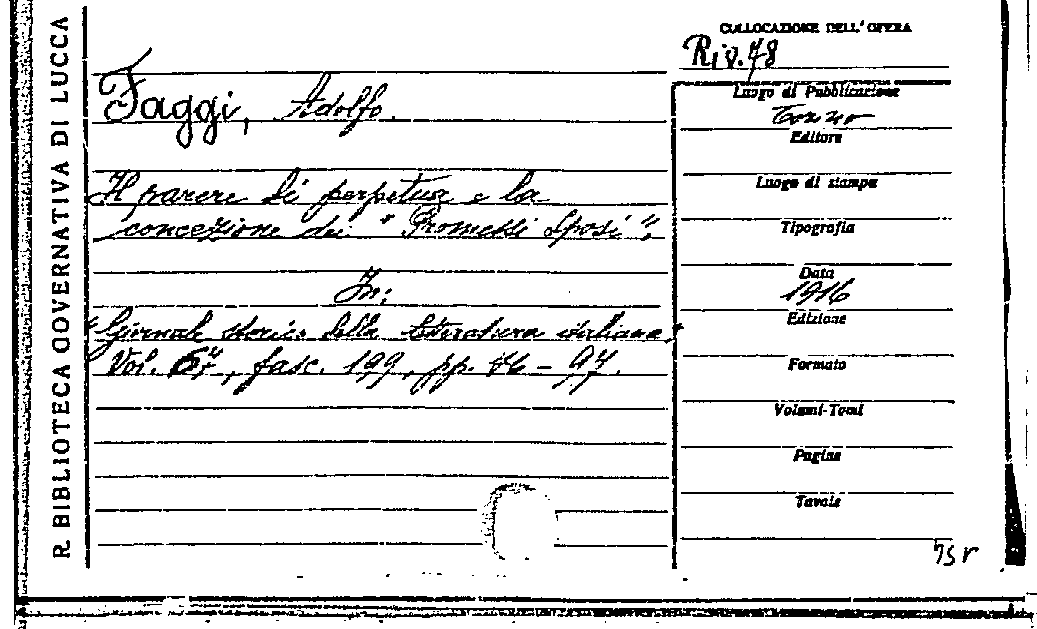 R. BIBLIOTECA GOVERNATIVA DI LUCCA
Faggi, Adolfo.
Il parere di perpetua e la
concezione dei "Promessi Sposi".
In:
"Giornale storico della letteratura italiana"
Vol. 67, fasc. 199, pp. 76 - 97.
COLLOCAZIONE DELL'OPERA
Riv. 78
Luogo di Pubblicazione
Torino
Editore
Luogo di stampa
Tipografia
Data
1916
Edizione
Formato
Volumi-Tomi
Pagine
Tavole